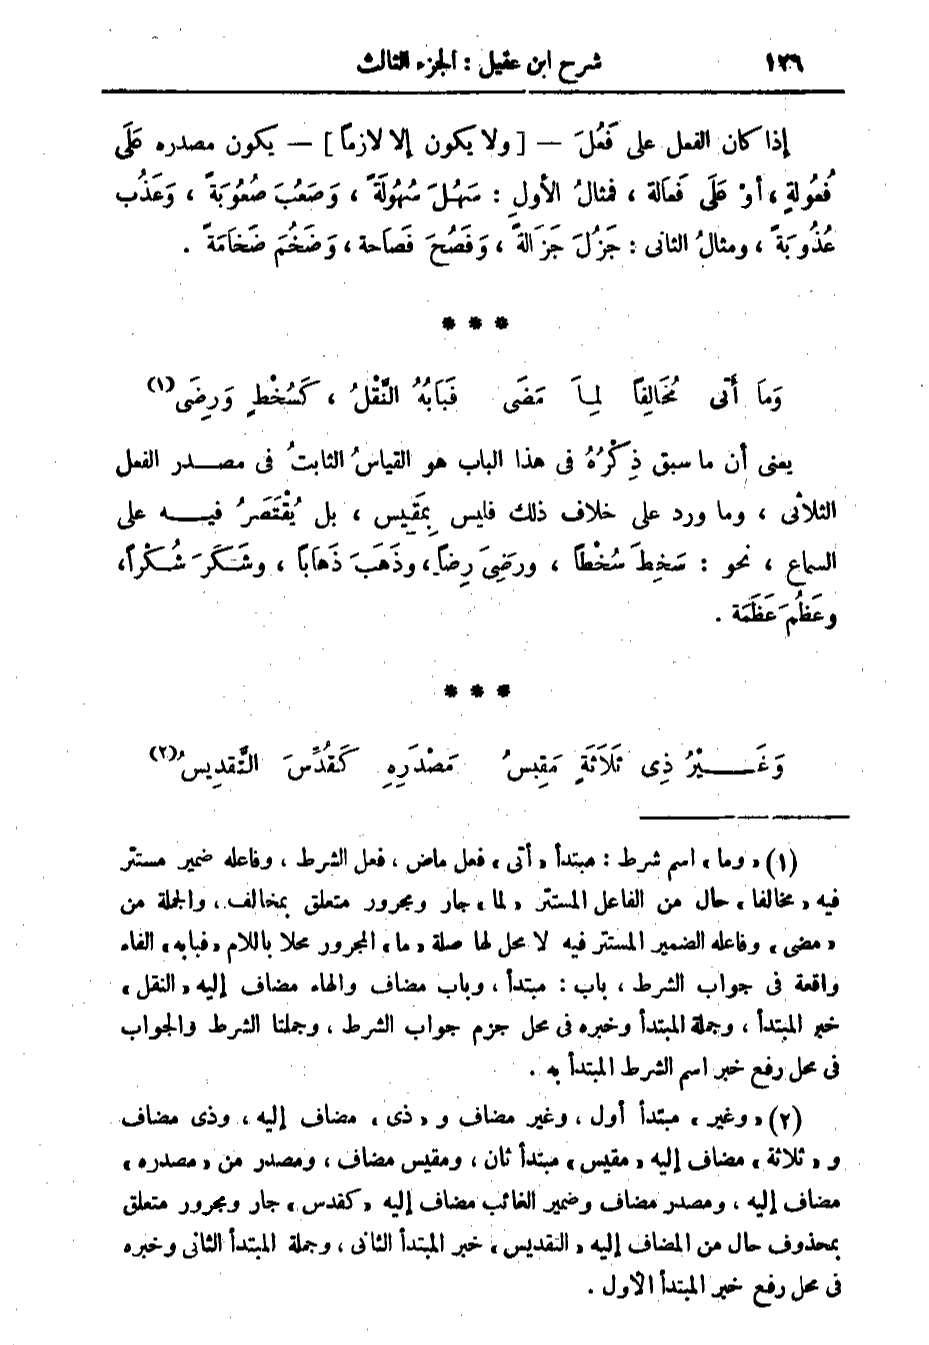 ١٢٦ شرح ابن عقيل : الجزء الثالث
إذا كان الفعل على فَعُلَ — [ ولا يكون إلا لازماً ] — يكون مصدره عَلَى
فُعُولةٍ ، أوْ عَلَى فَعالة ، فمثالُ الأولِ : سَهُلَ سُهُولَةً ، وَصَعُبَ صُعُوبَةً ، وَعَذُب
عُذُوبَةً ، ومثالُ الثانى : جَزُلَ جَزَالةً ، وَفَصُحَ فَصَاحة ، وَضَخُمَ ضَخامَةً .
* * *
وَمَا أَتَى مُخَالِفًا لِمـَا مَضَى فَبَابُهُ النَّقْلُ ، كَسُخْطٍ وَرِضَى(١)
يعنى أن ما سبق ذِكْرُهُ فى هذا الباب هو القياسُ الثابتُ فى مصـدر الفعل
الثلاثى ، وما ورد على خلاف ذلك فليس بِمَقِيس ، بل يُقْتَصَرُ فيـه على
السماع ، نحو : سَخِطَ سُخْطًا ، ورَضِىَ رِضاً ، وذَهَبَ ذَهَابًا ، وشَكَرَ شُكْراً،
وعَظُمَ عَظَمَة .
* * *
وَغَـــيْرُ ذِى ثَلَاثَةٍ مَقِيسُ مَصْدَرِهِ كَقُدِّسَ التَّقْدِيسُ(٢)
(١) «وما» اسم شرط : مبتدأ «أتى» فعل ماض ، فعل الشرط ، وفاعله ضمير مستتر
فيه «مخالفا» حال من الفاعل المستتر «لما» جار ومجرور متعلق بمخالف ، والجملة من
«مضى» وفاعله الضمير المستتر فيه لا محل لها صلة «ما» المجرور محلا باللام «فبابه» الفاء
واقعة فى جواب الشرط ، باب : مبتدأ ، وباب مضاف والهاء مضاف إليه «النقل»
خبر المبتدأ ، وجملة المبتدأ وخبره فى محل جزم جواب الشرط ، وجملتا الشرط والجواب
فى محل رفع خبر اسم الشرط المبتدأ به .
(٢) «وغير» مبتدأ أول ، وغير مضاف و «ذى» مضاف إليه ، وذى مضاف
و «ثلاثة» مضاف إليه «مقيس» مبتدأ ثان ، ومقيس مضاف ، ومصدر من «مصدره»
مضاف إليه ، ومصدر مضاف وضمير الغائب مضاف إليه «كقدس» جار ومجرور متعلق
بمحذوف حال من المضاف إليه «التقديس» خبر المبتدأ الثانى ، وجملة المبتدأ الثانى وخبره
فى محل رفع خبر المبتدأ الأول .